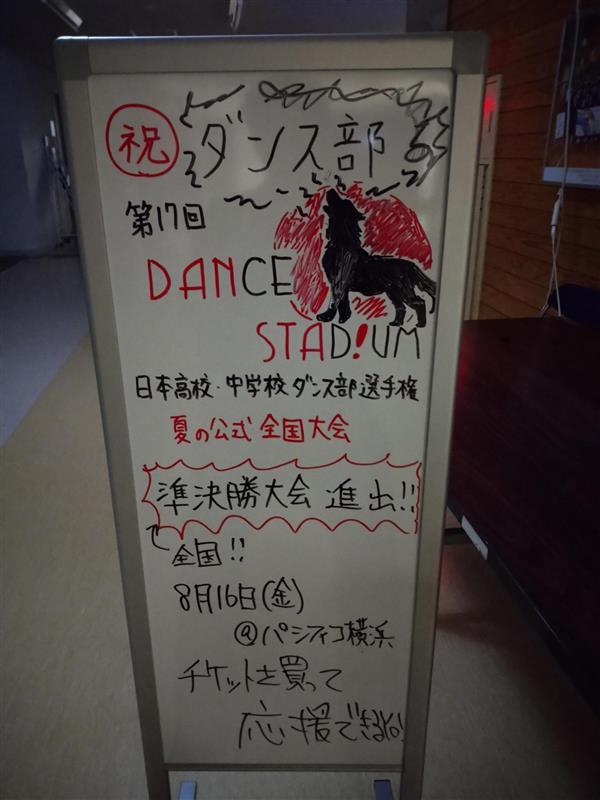 祝 ダンス部
第17回
DANCE
STAD!UM
日本高校・中学校ダンス部選手権
夏の公式全国大会
準決勝大会 進出!!
全国!!
8月16日(金)
@パシフィコ横浜
チケットを買って
応援できるね!